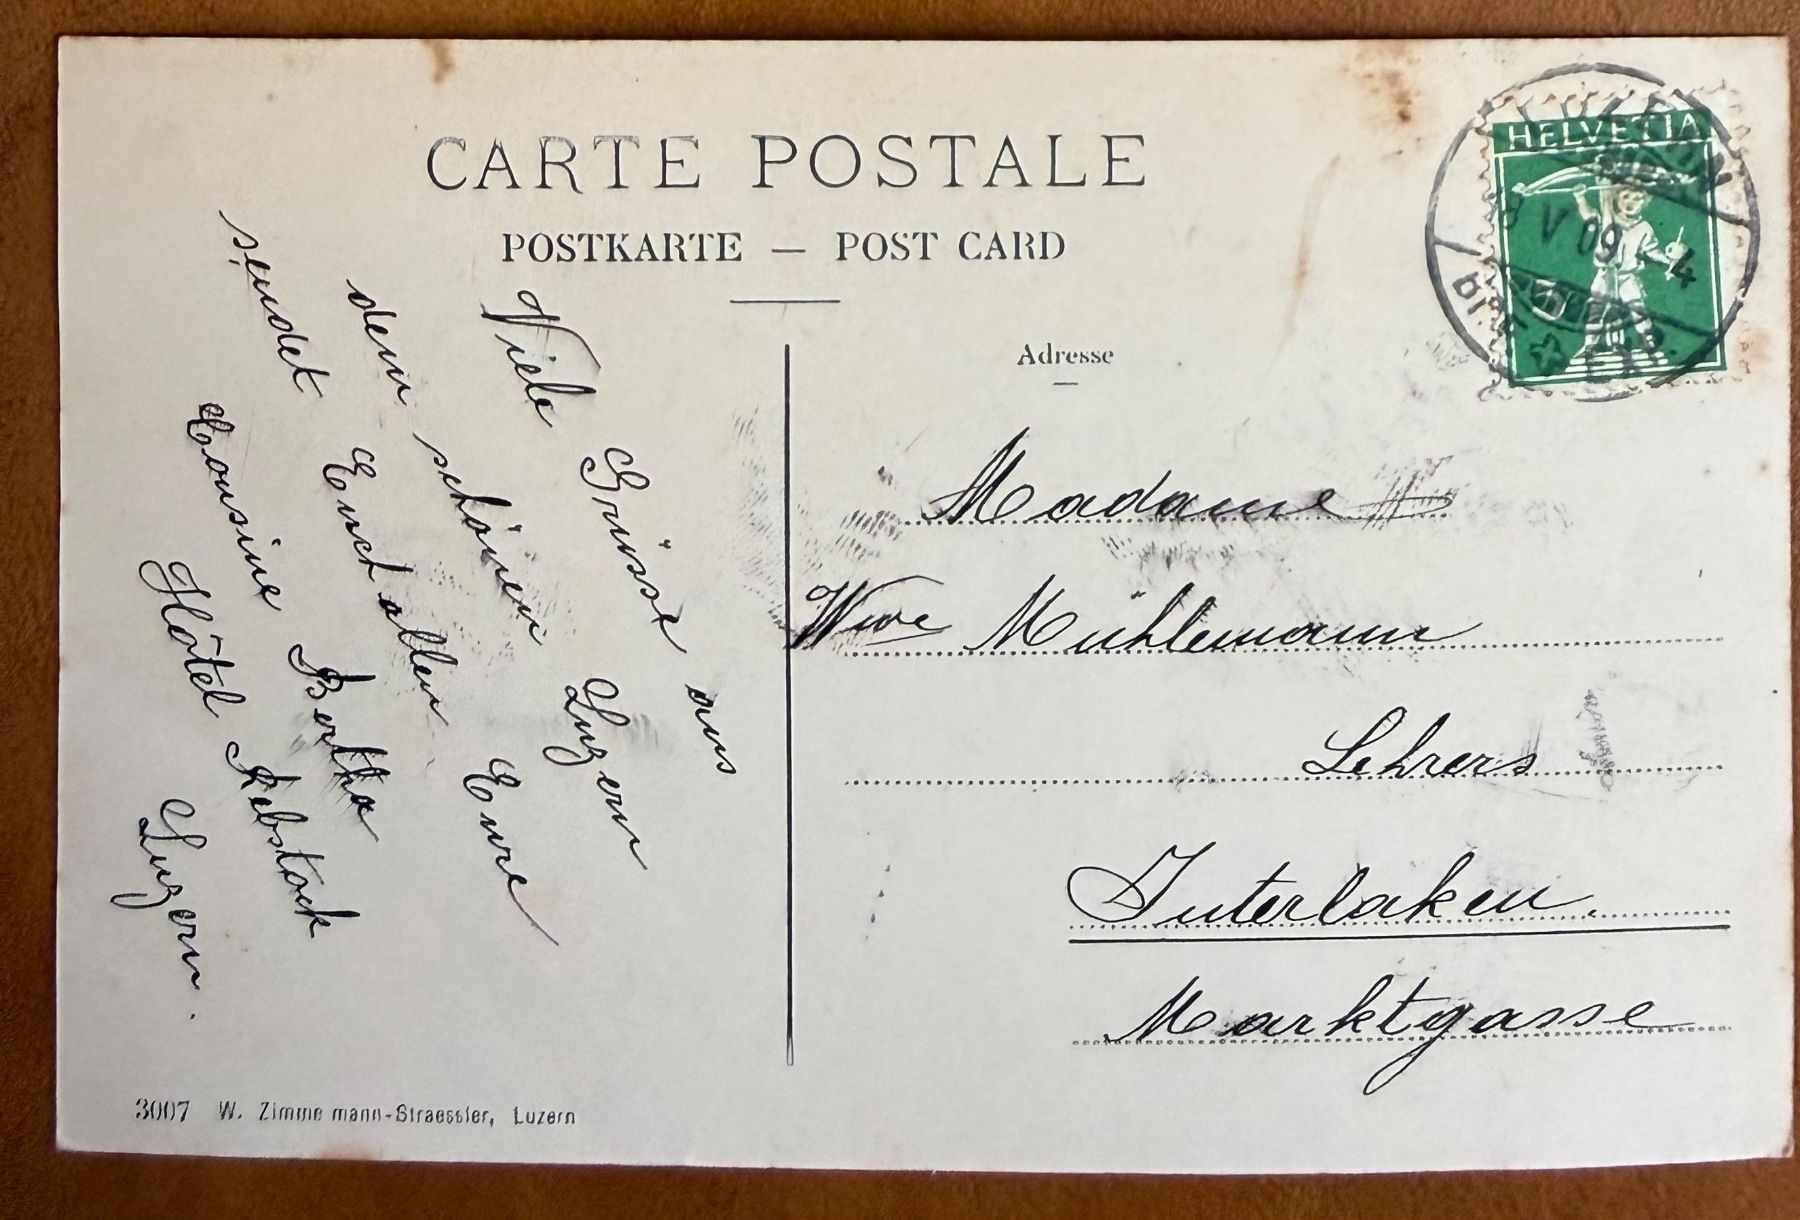 CARTE POSTALE
POSTKARTE — POST CARD
Viele Grüsse aus
dem schönen Luzern
sendet Euch allen Eure
Cousine Bertha
Hôtel Rebstock
Luzern.
3007 W. Zimmermann-Straessler, Luzern
HELVETIA
LUZERN
V 09
4
Adresse
Madame
Wwe Mühlemann
Lehrers
Interlaken.
Marktgasse